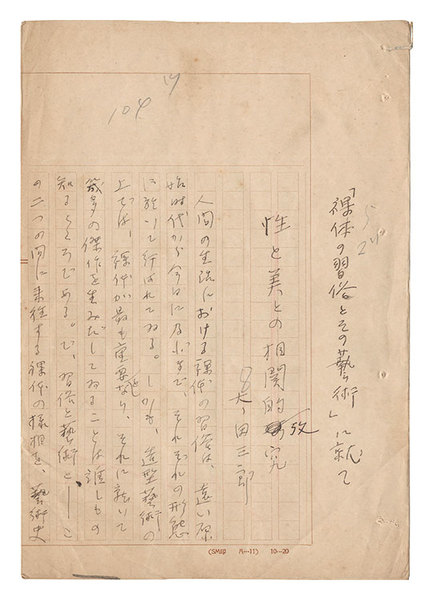 「裸体の習俗とその藝術」に就て
性と美との相関的攷究
太田三郎
人間の生活における裸体の習俗は、遠い原
始時代から今日に及ぶまで、それぞれの形態
に於いて行はれてゐる。しかも、造型藝術の
上では、裸体が最も重要な、それに就いて
幾多の傑作を生みだしてゐることは誰しもの
知るところである。で、習俗と藝術と――こ
の二つの間に来往する裸体の様相を、藝術史
104
(SM印 A-11) 10-20